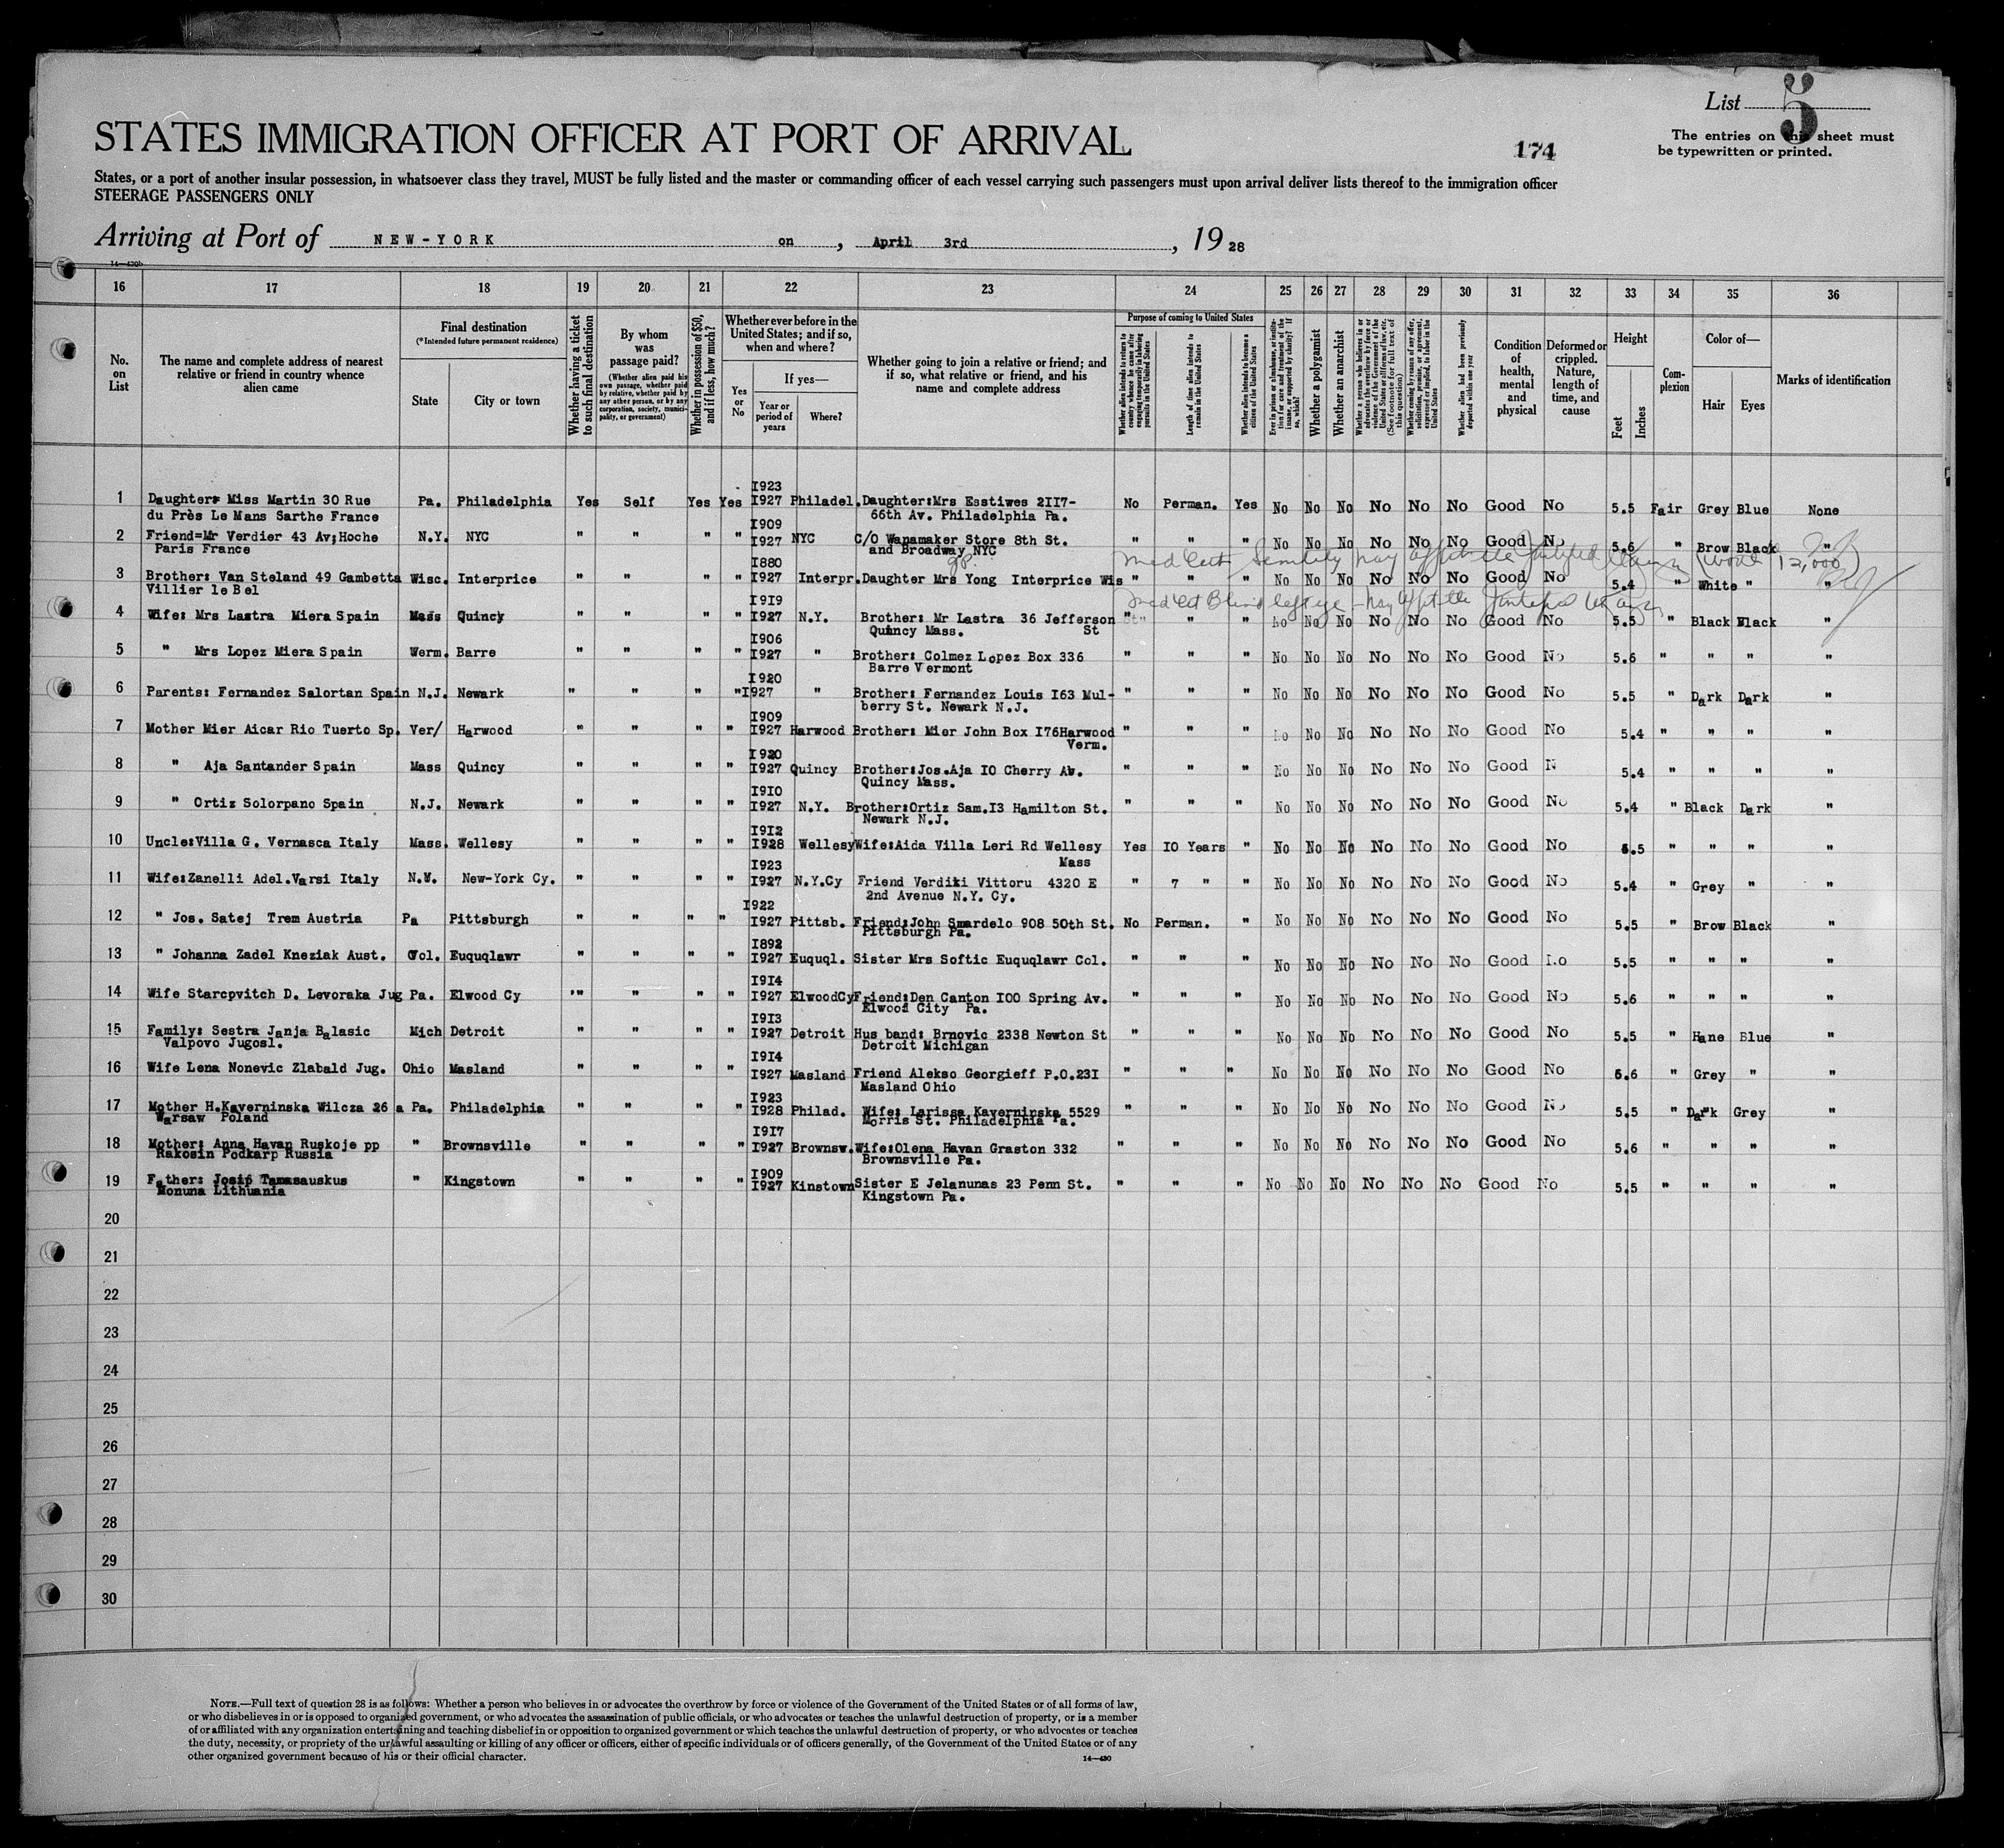 List 5
STATES IMMIGRATION OFFICER AT PORT OF ARRIVAL
174
The entries on this sheet must
be typewritten or printed.
States, or a port of another insular possession, in whatsoever class they travel, MUST be fully listed and the master or commanding officer of each vessel carrying such passengers must upon arrival deliver lists thereof to the immigration officer
STEERAGE PASSENGERS ONLY
Arriving at Port of NEW-YORK on , April 3rd , 19 28
14—430b
16 17 18 19 20 21 22 23 24 25 26 27 28 29 30 31 32 33 34 35 36
No. on List
The name and complete address of nearest relative or friend in country whence alien came
Final destination
(*Intended future permanent residence)
State
City or town
Whether having a ticket to such final destination
By whom was passage paid?
(Whether alien paid his own passage, whether paid by relative, whether paid by any other person, or by any corporation, society, municipality, or government)
Whether in possession of $50, and if less, how much?
Whether ever before in the United States; and if so, when and where?
Yes or No
If yes—
Year or period of years
Where?
Whether going to join a relative or friend; and if so, what relative or friend, and his name and complete address
Purpose of coming to United States
Whether alien intends to return to country whence he came after engaging temporarily in laboring pursuits in the United States
Length of time alien intends to remain in the United States
Whether alien intends to become a citizen of the United States
Ever in prison or almshouse, or institution for care and treatment of the insane, or supported by charity? If so, which?
Whether a polygamist
Whether an anarchist
Whether a person who believes in or advocates the overthrow by force or violence of the Government of the United States or all forms of law, etc. (See footnote for full text of this question)
Whether coming by reason of any offer, solicitation, promise, or agreement, expressed or implied, to labor in the United States
Whether alien had been previously deported within one year
Condition of health, mental and physical
Deformed or crippled. Nature, length of time, and cause
Height
Feet
Inches
Complexion
Color of—
Hair
Eyes
Marks of identification
1 Daughter: Miss Martin 30 Rue Pa. Philadelphia Yes Self Yes Yes I923 I927 Philadel. Daughter:Mrs Esstiwes 2II7- No Perman. Yes No No No No No No Good No 5.5 Fair Grey Blue None
du Près Le Mans Sarthe France 66th Av. Philadelphia Pa.
2 Friend=Mr Verdier 43 Av;Hoche N.Y. NYC " " " " I909 I927 NYC C/O Wanamaker Store 8th St. " " " No No No No No No Good No 5.6 " Brow Black "
Paris France and Broadway NYC
Med Cert Senility may affect
3 Brother: Van Steland 49 Gambetta Wisc. Interprice " " " " I880 I927 Interpr. Daughter Mrs Yong Interprice Wis " " " No No No No No No Good No 5.4 " White " "
Villier le Bel
Med Cert Blind left eye
4 Wife: Mrs Lastra Miera Spain Mass Quincy " " " " I9I9 I927 N.Y. Brother: Mr Lastra 36 Jefferson " " " No No No No No No Good No 5.5 " Black Black "
Quincy Mass. St
5 " Mrs Lopez Miera Spain Werm. Barre " " " " I906 I927 " Brother: Colmez Lopez Box 336 " " " No No No No No No Good No 5.6 " " " "
Barre Vermont
6 Parents: Fernandez Salortan Spain N.J. Newark " " " " I920 I927 " Brother: Fernandez Louis I63 Mul- " " " No No No No No No Good No 5.5 " Dark Dark "
berry St. Newark N.J.
7 Mother Mier Aicar Rio Tuerto Sp. Ver/ Harwood " " " " I909 I927 Harwood Brother: Mier John Box I76Harwood " " " No No No No No No Good No 5.4 " " " "
Verm.
8 " Aja Santander Spain Mass Quincy " " " " I920 I927 Quincy Brother:Jos.Aja IO Cherry Av. " " " No No No No No No Good N 5.4 " " " "
Quincy Mass.
9 " Ortiz Solorpano Spain N.J. Newark " " " " I9IO I927 N.Y. Brother:Ortiz Sam.I3 Hamilton St. " " " No No No No No No Good No 5.4 " Black Dark "
Newark N.J.
10 Uncle:Villa G. Vernasca Italy Mass. Wellesy " " " " I9I2 I928 Wellesy Wife:Aida Villa Leri Rd Wellesy Yes IO Years " No No No No No No Good No 5.5 " " " "
Mass
11 Wife:Zanelli Adel.Varsi Italy N.Y. New-York Cy. " " " " I923 I927 N.Y.Cy Friend Verdiki Vittoru 4320 E " 7 " " No No No No No No Good No 5.4 " Grey " "
2nd Avenue N.Y. Cy.
12 " Jos. Satej Trem Austria Pa Pittsburgh " " " " I922 I927 Pittsb. Friend:John Smardelo 908 50th St. No Perman. " No No No No No No Good No 5.5 " Brow Black "
Pittsburgh Pa.
13 " Johanna Zadel Kneziak Aust. Col. Euquqlawr " " " " I892 I927 Euquql. Sister Mrs Softic Euquqlawr Col. " " " No No No No No No Good No 5.5 " " " "
14 Wife Starcpvitch D. Levoraka Jug Pa. Elwood Cy " " " " I9I4 I927 ElwoodCy Friend:Den Canton IOO Spring Av. " " " No No No No No No Good No 5.6 " " " "
Elwood City Pa.
15 Family: Sestra Janja Balasic Mich Detroit " " " " I9I3 I927 Detroit Hus band: Brnovic 2338 Newton St " " " No No No No No No Good No 5.5 " Hane Blue "
Valpovo Jugosl. Detroit Michigan
16 Wife Lena Nonevic Zlabald Jug. Ohio Masland " " " " I9I4 I927 Masland Friend Alekso Georgieff P.O.23I " " " No No No No No No Good No 5.6 " Grey " "
Masland Ohio
17 Mother H.Kaverninska Wilcza 26 a Pa. Philadelphia " " " " I923 I928 Philad. Wife: Larissa Kaverninska 5529 " " " No No No No No No Good No 5.5 " Dark Grey "
Warsaw Poland Morris St. Philadelphia Pa.
18 Mother: Anna Havan Ruskoje pp " Brownsville " " " " I9I7 I927 Brownsw. Wife:Olena Havan Graston 332 " " " No No No No No No Good No 5.6 " " " "
Rakosin Podkarp Russia Brownsville Pa.
19 Father: Josip Tamasauskus " Kingstown " " " " I909 I927 Kinstown Sister E Jelanunas 23 Penn St. " " " No No No No No No Good No 5.5 " " " "
Monuna Lithuania Kingstown Pa.
20
21
22
23
24
25
26
27
28
29
30
NOTE.—Full text of question 28 is as follows: Whether a person who believes in or advocates the overthrow by force or violence of the Government of the United States or of all forms of law,
or who disbelieves in or is opposed to organized government, or who advocates the assassination of public officials, or who advocates or teaches the unlawful destruction of property, or is a member
of or affiliated with any organization entertaining and teaching disbelief in or opposition to organized government or which teaches the unlawful destruction of property, or who advocates or teaches
the duty, necessity, or propriety of the unlawful assaulting or killing of any officer or officers, either of specific individuals or of officers generally, of the Government of the United States or of any
other organized government because of his or their official character.
14—430